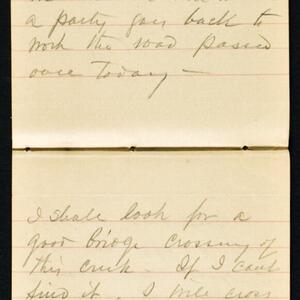 a party goes back to
work the road passed
over today —
I shall look for a
good bridge crossing of
this creek - If I can't
find it, I will cross